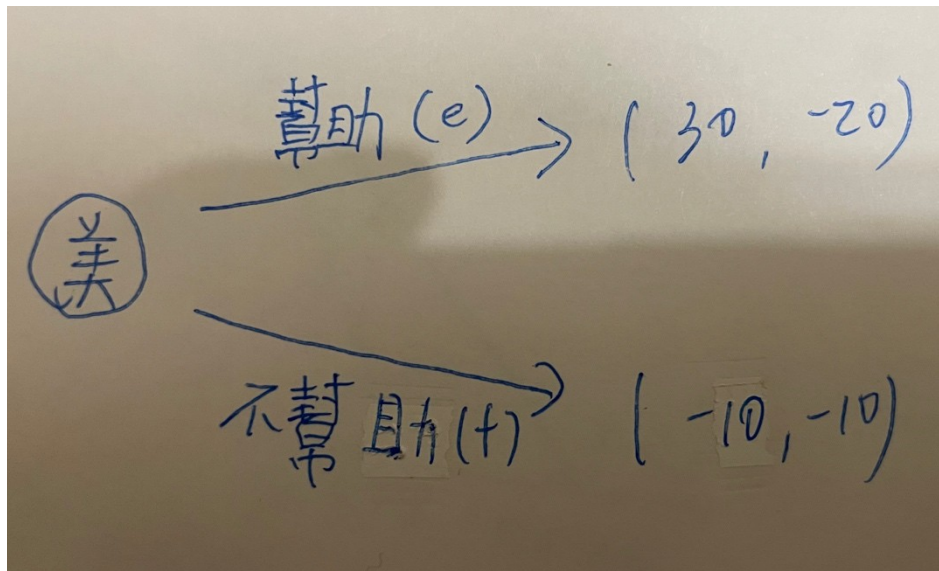 幫助(e)
(30, -20)
美
不幫助(f)
(-10, -10)